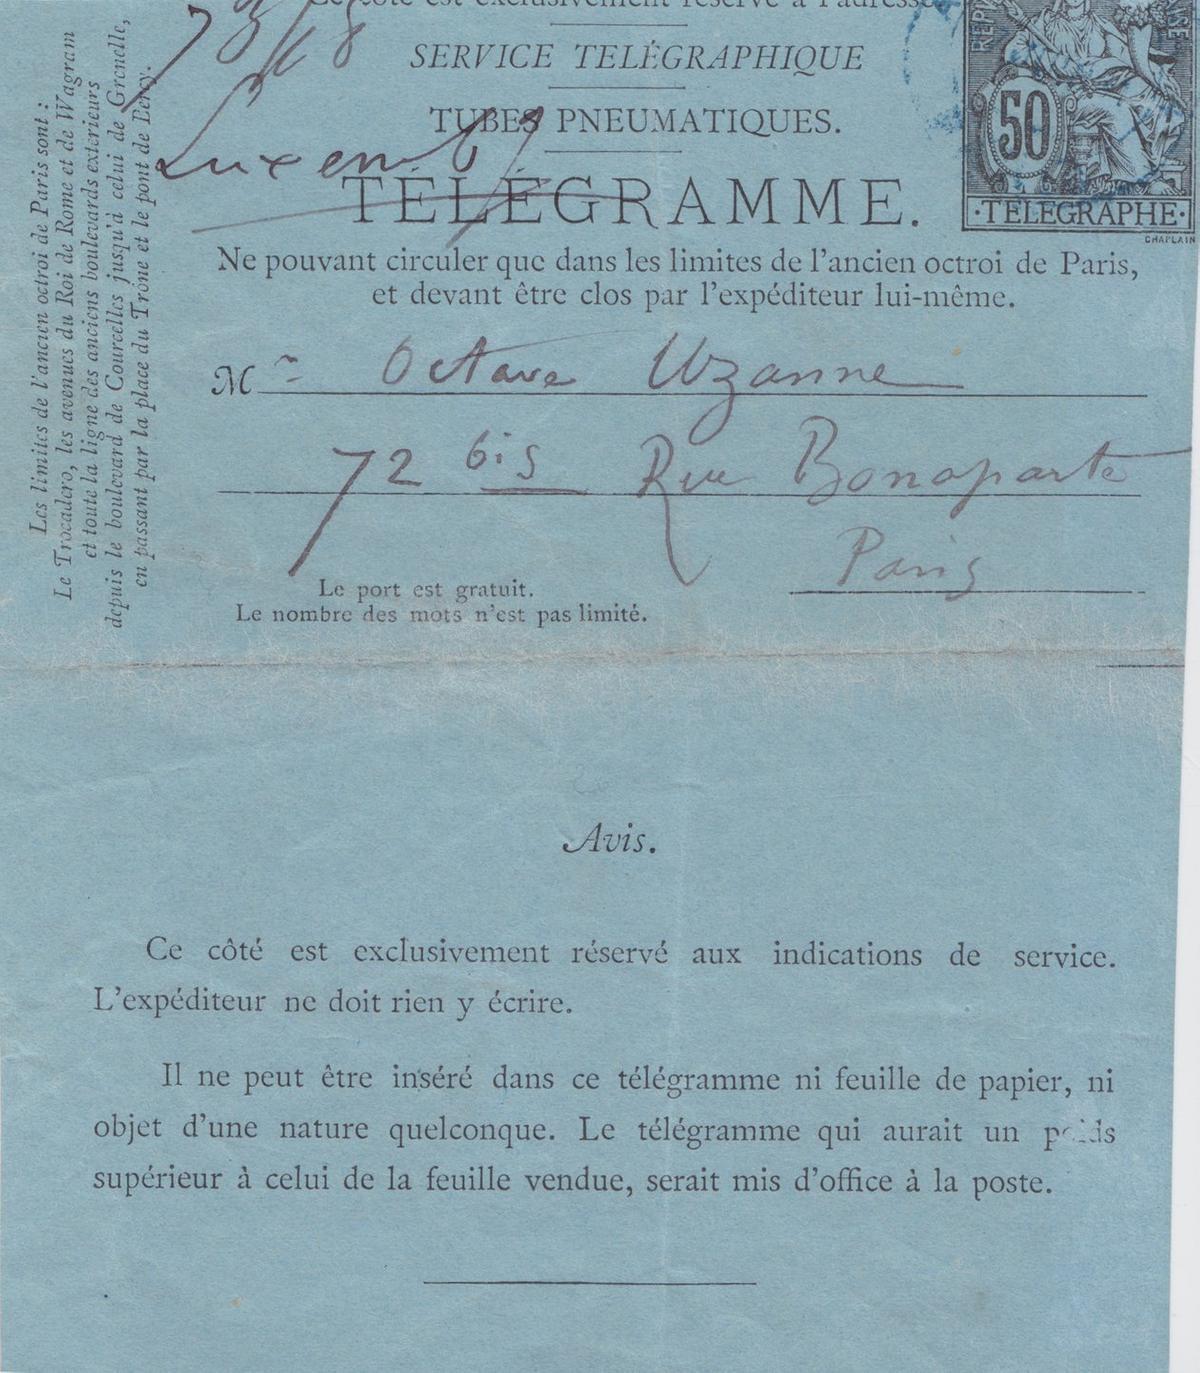 Ce côté est exclusivement réservé à l'adresse
SERVICE TELÉGRAPHIQUE
TUBES PNEUMATIQUES.
Luxemb
TÉLÉGRAMME.
REPU
50
·TELEGRAPHE·
CHAPLAIN
Ne pouvant circuler que dans les limites de l'ancien octroi de Paris,
et devant être clos par l'expéditeur lui-même.
Mr Octave Uzanne
72 bis Rue Bonaparte
Paris
Le port est gratuit.
Le nombre des mots n'est pas limité.
Les limites de l'ancien octroi de Paris sont :
Le Trocadéro, les avenues du Roi de Rome et de Wagram
et toute la ligne des anciens boulevards extérieurs
depuis le boulevard de Courcelles jusqu'à celui de Grenelle,
en passant par la place du Trône et le pont de Bercy.
Avis.
Ce côté est exclusivement réservé aux indications de service.
L'expéditeur ne doit rien y écrire.
Il ne peut être inséré dans ce télégramme ni feuille de papier, ni
objet d'une nature quelconque. Le télégramme qui aurait un poids
supérieur à celui de la feuille vendue, serait mis d'office à la poste.